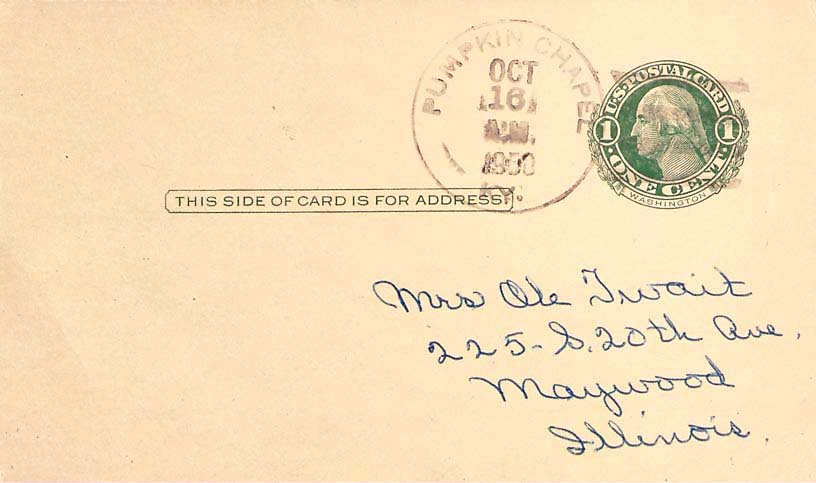 PUMPKIN CHAPEL
OCT
16
A.M.
1950
KY.
U.S. POSTAL CARD
1 1
ONE CENT
WASHINGTON
THIS SIDE OF CARD IS FOR ADDRESS
Mrs Ole Twait
225-S. 20th Ave.
Maywood
Illinois.